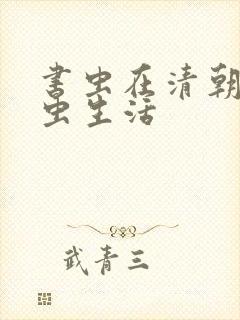 书虫在清朝
虫生活
武青三